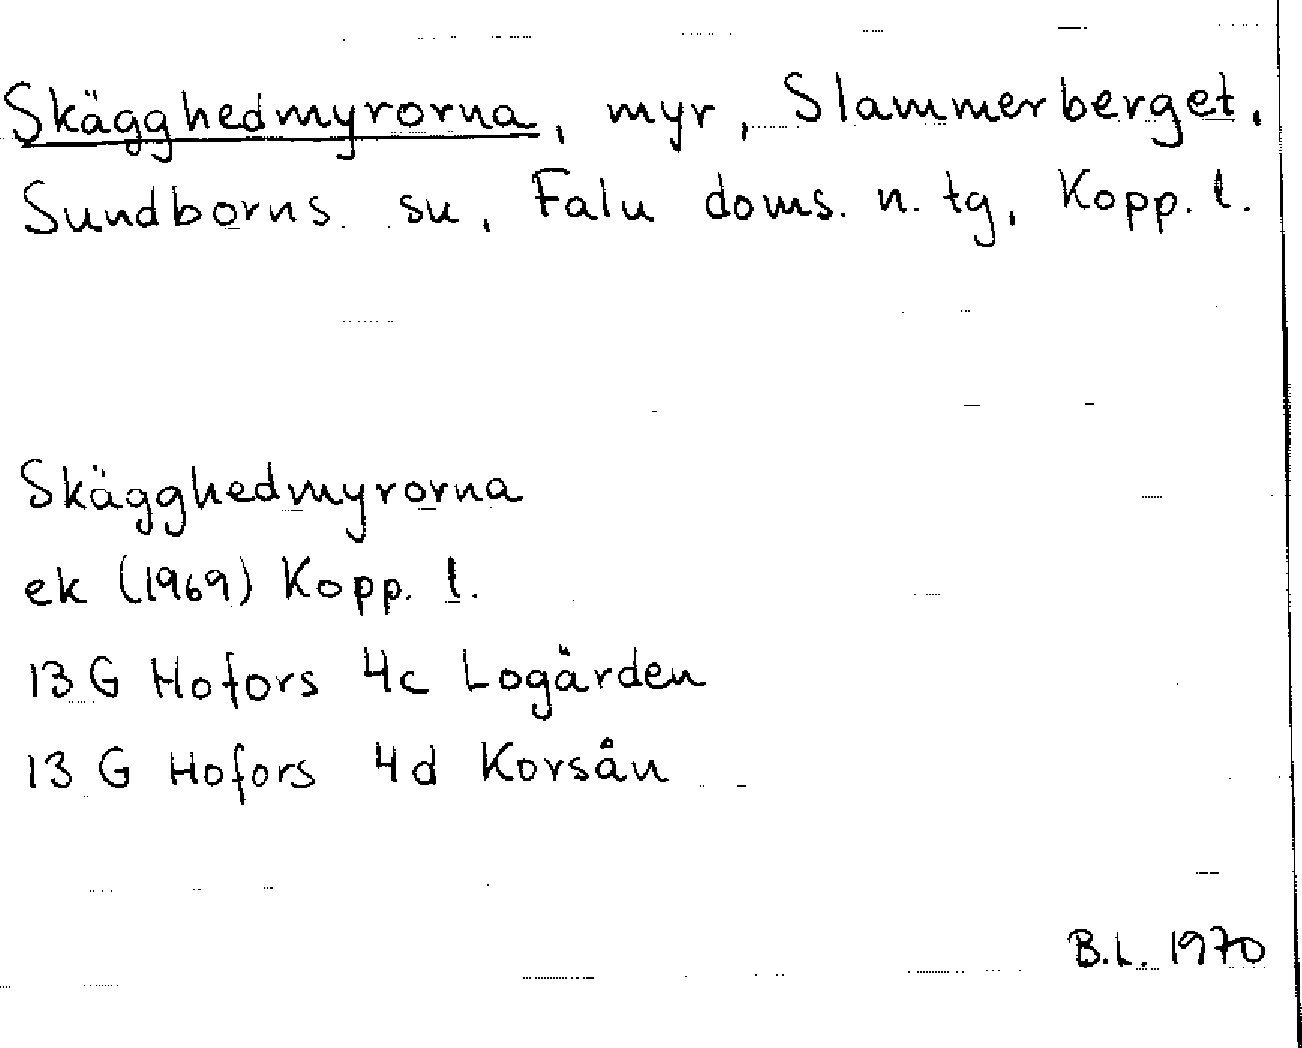 Skägghedmyrorna, myr, Slammerberget,
Sundborns su, Falu doms. n. tg, Kopp. l.
Skägghedmyrorna
ek (1969) Kopp. l.
13 G Hofors 4c Logärden
13 G Hofors 4d Korsån
B.L. 1970